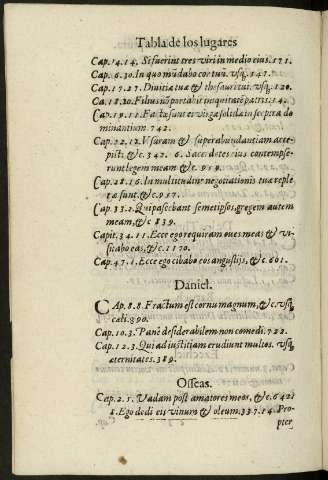 Tabla de los lugares
Cap. 14. 14. Si fuerint tres viri in medio eius. 171.
Cap. 6. 30. In quo mūdabo cor tuū. vsq; 147.
Cap. 17. 27. Diuitiæ tuæ & thesauri tui. vsq; 120.
Ca. 18. 20. Filius nō portabit iniquitatē patris. 14.
Cap. 19. 11. Factæ sunt ei virgæ solidæ in sceptra do
minantium. 742.
Cap. 22. 12. Vsuram & superabundantiam acce
pisti, &c. 342. 6. Sacerdotes eius contempse-
runt legem meam &c. 959.
Cap. 28. 16. In multitudine negotiationis tuæ reple
tæ sunt, &c. 957.
Cap. 33. 2. Qui pascebant semetipsos, gregem autem
meam, &c 839
Capit. 34. 11. Ecce ego requiram oues meas & vi-
sitabo eas, &c. 1170.
Cap. 47. 1. Ecce ego cibabo eos angustijs, &c. 601.
Daniel.
CAp. 8. 8. Fractum est cornu magnum, &c. vsq;
cæli. 390.
Cap. 10. 3. Panē desiderabilem non comedi. 722.
Cap. 12. 3. Qui ad iustitiam erudiunt multos. vsq;
æternitates. 389.
Osseas.
Cap. 2. 5. Vadam post amatores meos, &c. 642.
8. Ego dedi eis vinum & oleum. 337. 14. Pro-
pter